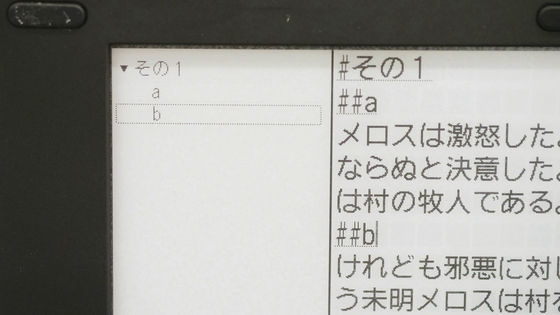 ▼ その１
a
b
#その１
##a
メロスは激怒した。
ならぬと決意した。
は村の牧人である。
##b
けれども邪悪に対し
う未明メロスは村を